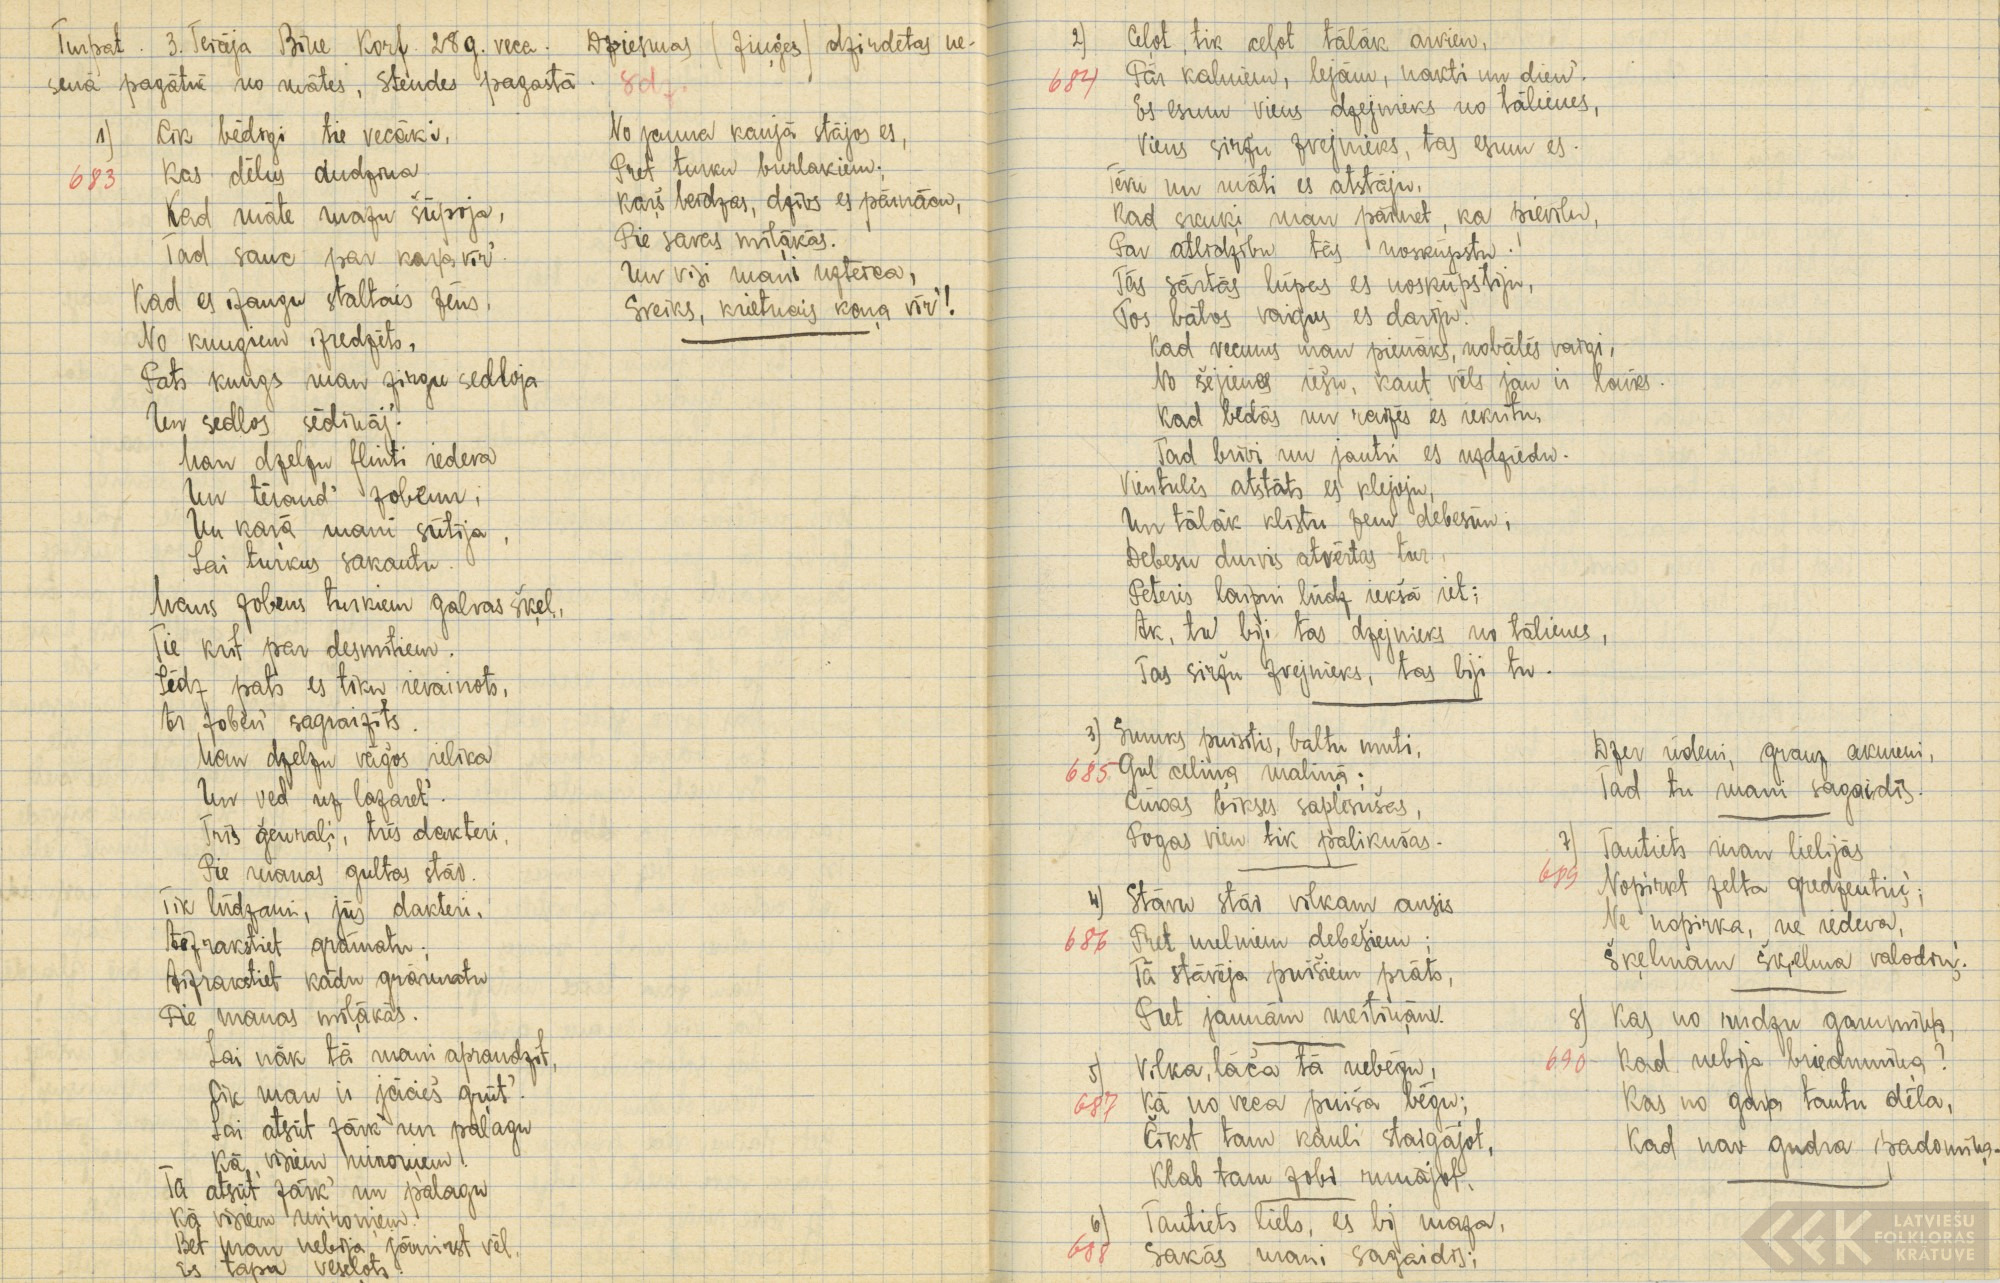 Turpat. 3. Teicēja Bīne Korf. 28 g. veca. Dziesmas (ziņģes) dzirdētas ne-
senā pagātnē no mātes, Stendes pagastā.
8 dz.
1) Cik bēdīgi tie vecāki,
683 Kas dēlus audzina
Kad māte mazu šūpoja,
Tad sauc par kaŗa vīr'.
Kad es izaugu staltais zēns,
No kungiem izredzēts,
Pats kungs man zirgu sedloja
Un sedlos sēdināj'.
Man dzelzu flinti iedeva
Un tēraud' zobenu;
Un kaŗā mani sūtīja,
Lai turkus sakautu.
Mans zobens turkiem galvas šķeļ,
Tie krīt par desmitiem.
Līdz pats es tiku ievainots,
Ar zoben' sagraizīts.
Man dzelzu vāģos ielika
Un ved uz lazaret'.
Trīs ģenrāļi, trīs dakteri,
Pie manas gultas stāv.
Tik lūdzami, jūs dakteri,
Aizrakstiet grāmatu;
Aizrakstiet kādu grāmatu
Pie manas mīļākās.
Lai nāk tā mani apraudzīt,
Cik man ir jācieš grūt'.
Lai atsūt zārk' un palagu
Kā visiem miroņiem.
Tā atsūt' zārk' un palagu
Kā visiem miroņiem.
Bet man nebija jāmirst vēl,
Es tapu veselots.
No jauna kaujā stājos es,
Pret turku burlakiem;
Kaŗš beidzas, dzīvs es pārnācu,
Pie savas mīļākās.
Un visi mani uzteica,
Sveiks, krietnais kaŗa vīr'!
2) Ceļot, tik ceļot tālāk arvien,
684 Pār kalniem, lejām, nakti un dien'.
Es esmu viens dzejnieks no tālienes,
Viens siržu zvejnieks, tas esmu es.
Tēvu un māti es atstāju,
Kad skuķi man pārmet, ka pievīlu,
Par atlīdzību tās noskūpstu.
Tās sārtās lūpas es noskūpstīju,
Tos bālos vaigus es darīju.
Kad vecums man pienāks, nobālēs vaigi,
No šejienes iešu, kaut vēls jau ir laiks.
Kad bēdās un raizēs es iekrītu,
Tad brīvi un jautri es uzdziedu.
Vientulis atstāts es klejoju,
Un tālāk klīstu zem debesīm;
Debesu durvis atvērtas tur,
Pēteris laipni lūdz iekšā iet;
Ak, tu biji tas dzejnieks no tālienes,
Tas siržu zvejnieks, tas biji tu.
3) Smuks puisītis, baltu muti,
685 Guļ celiņa maliņā;
Cūkas bikses saplēsušas,
Pogas vien tik palikušas.
4) Stāvu stāv vilkam ausis
686 Pret melniem debešiem;
Tā stāvēja puišiem prāts,
Pret jaunām meitiņām.
5) Vilka, lāča tā nebēgu,
687 Kā no veca puiša bēgu;
Čikst tam kauli staigājot,
Klab tam zobi runājot.
6) Tautiets liels, es bij maza,
688 Sakās mani sagaidīs;
Dzer ūdeni, grauz akmeni,
Tad tu mani sagaidīs.
7) Tautiets man lielijās
689 Nopirkt zelta gredzentiņ';
Ne nopirka, ne iedeva,
Šķelmam šķelma valodiņ'.
8) Kas no rudzu garumiņa,
690 Kad nebija briedumiņa?
Kas no gaŗa tautu dēla,
Kad nav gudra padomiņa.
LATVIEŠU
FOLKLORAS
KRĀTUVE